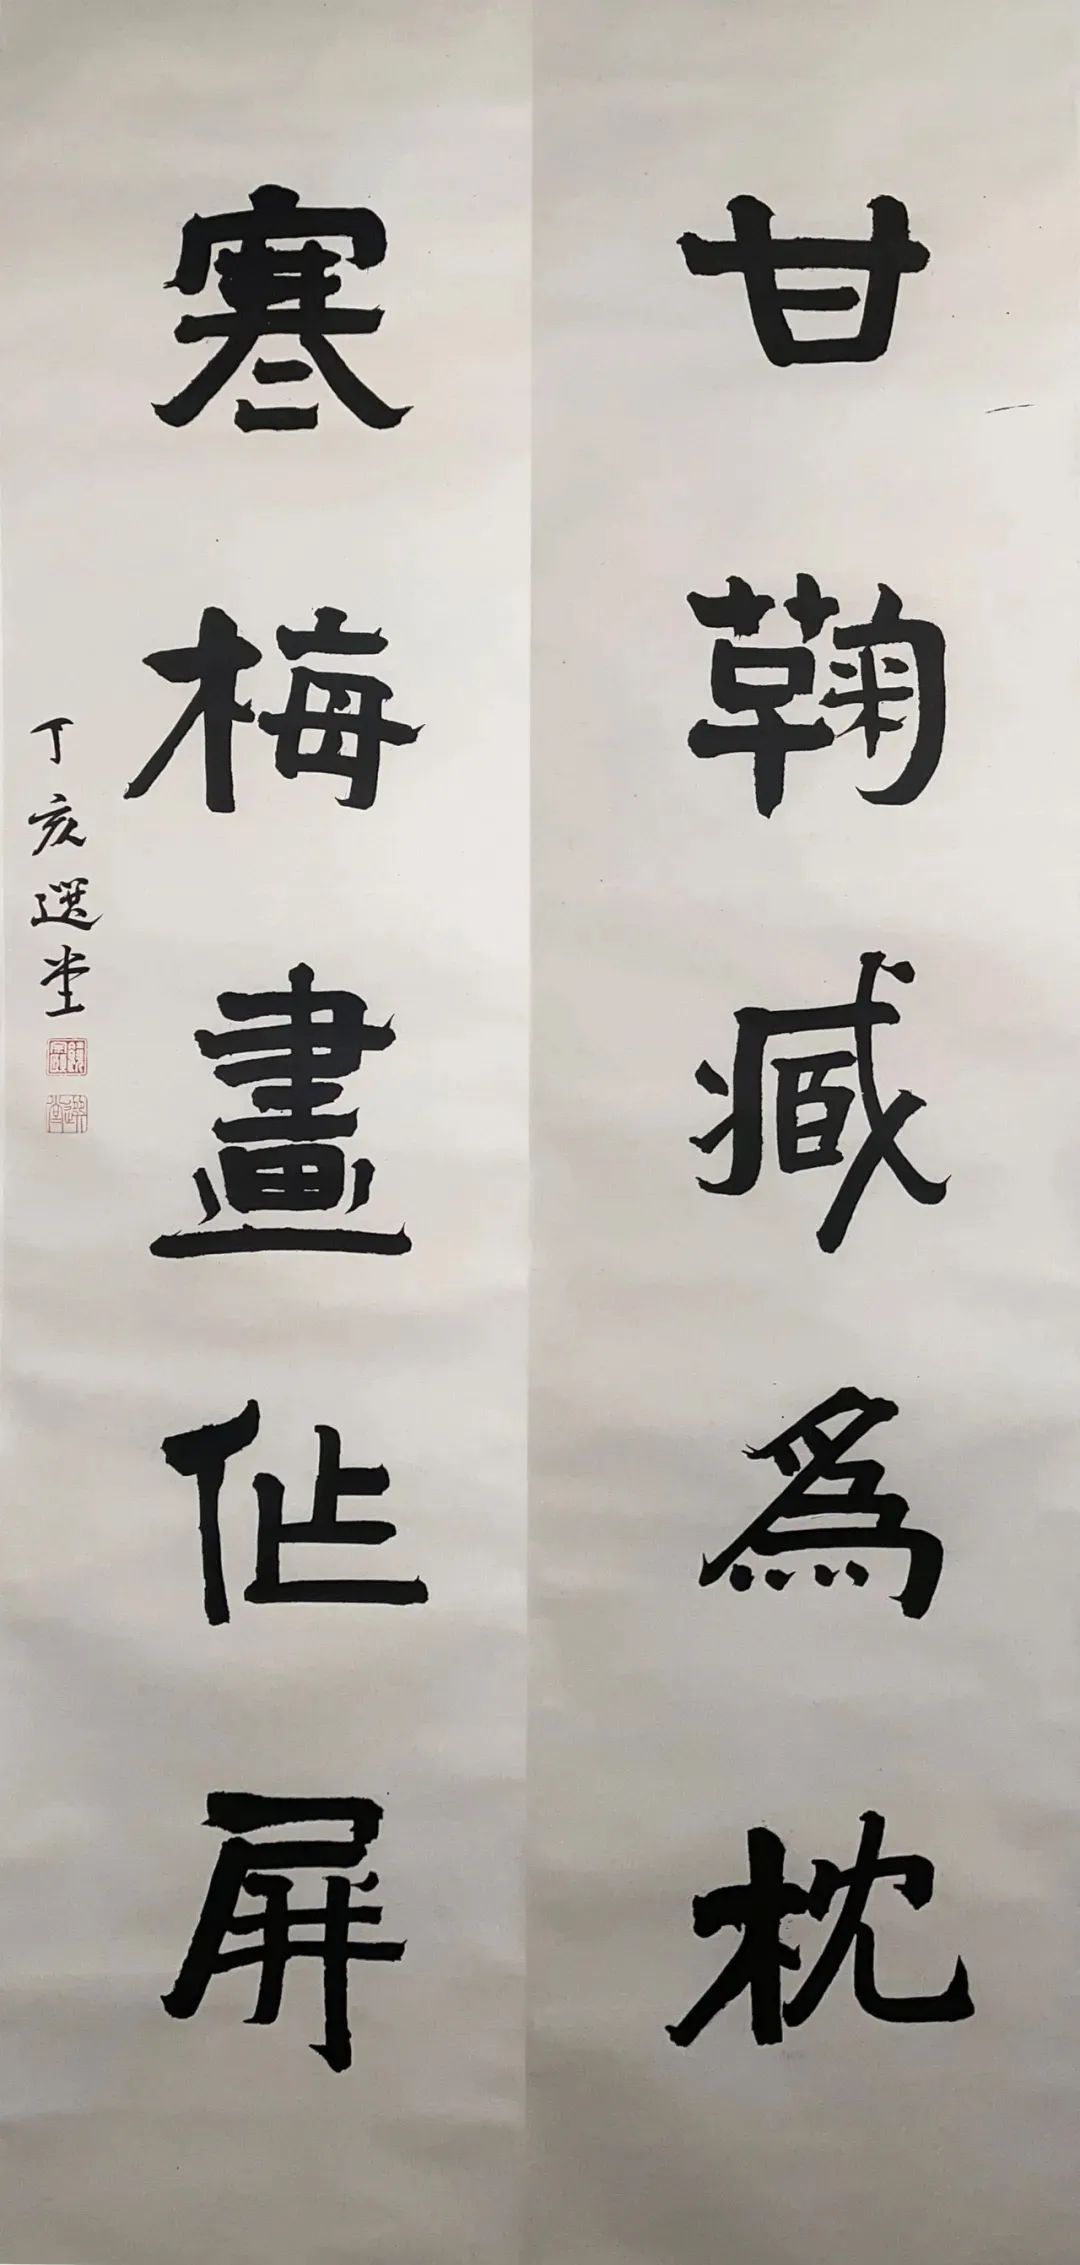 甘鞠臧為枕
寒梅畫作屏
丁亥選堂
選堂